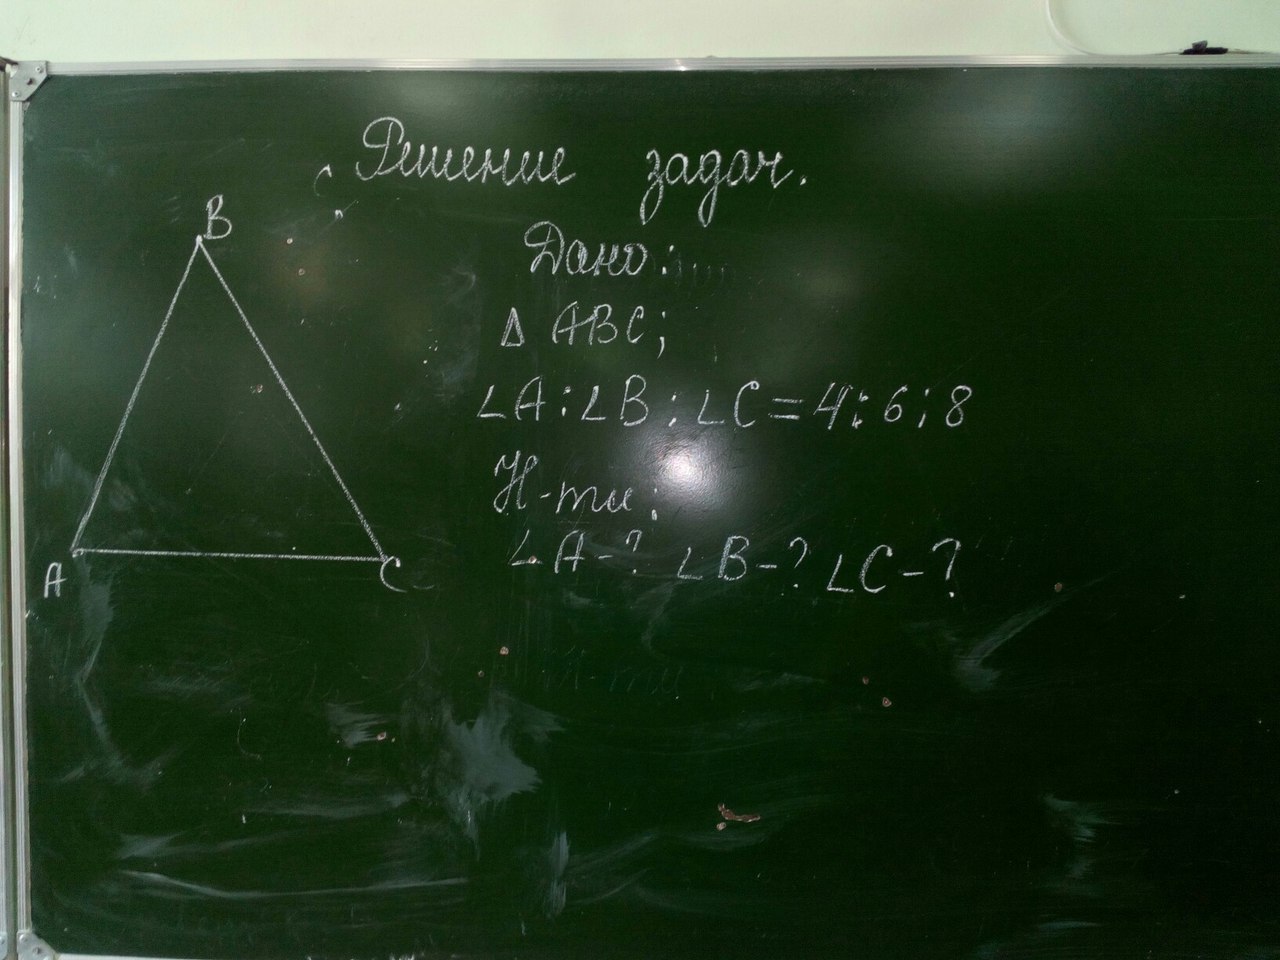 Решение задач.
B
Дано:
Δ ABC;
∠A:∠B:∠C=4:6:8
Н-ти:
∠A-? ∠B-? ∠C-?
A
C